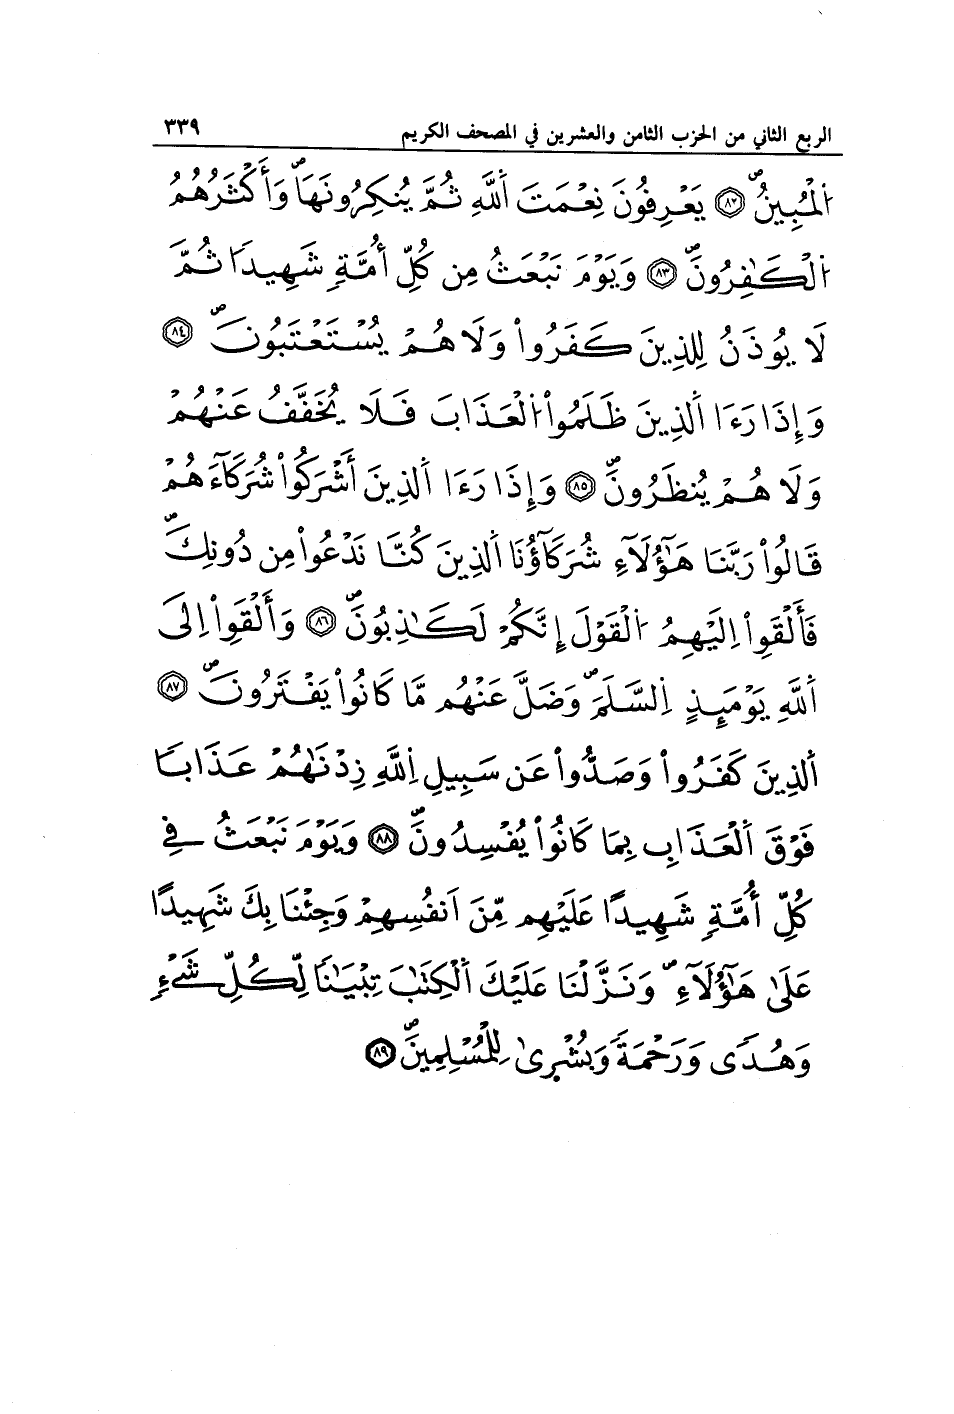 الربع الثاني من الحزب الثامن والعشرين في المصحف الكريم ٣٣٩
اَ۬لْمُبِينُۖ ٨٢ يَعْرِفُونَ نِعْمَتَ اَ۬للَّهِ ثُمَّ يُنكِرُونَهَاۖ وَأَكْثَرُهُمُ
اُ۬لْكَٰفِرُونَۖ ٨٣ وَيَوْمَ نَبْعَثُ مِن كُلِّ أُمَّةٖ شَهِيداٗ ثُمَّ
لَا يُوذَنُ لِلذِينَ كَفَرُواْ وَلَا هُمْ يُسْتَعْتَبُونَۖ ٨٤
وَإِذَا رَءَا اَ۬لذِينَ ظَلَمُواْ اُ۬لْعَذَابَ فَلَا يُخَفَّفُ عَنْهُمْ
وَلَا هُمْ يُنظَرُونَۖ ٨٥ وَإِذَا رَءَا اَ۬لذِينَ أَشْرَكُواْ شُرَكَآءَهُمْ
قَالُواْ رَبَّنَا هَٰٓؤُلَآءِ شُرَكَآؤُنَا اَ۬لذِينَ كُنَّا نَدْعُواْ مِن دُونِكَۖ
فَأَلْقَوِاْ اِلَيْهِمُ اُ۬لْقَوْلَ إِنَّكُمْ لَكَٰذِبُونَۖ ٨٦ وَأَلْقَوِاْ اِلَى
اَ۬للَّهِ يَوْمَئِذٍ اِ۬لسَّلَمَۖ وَضَلَّ عَنْهُم مَّا كَانُواْ يَفْتَرُونَۖ ٨٧
اَ۬لذِينَ كَفَرُواْ وَصَدُّواْ عَن سَبِيلِ اِ۬للَّهِ زِدْنَٰهُمْ عَذَاباٗ
فَوْقَ اَ۬لْعَذَابِ بِمَا كَانُواْ يُفْسِدُونَۖ ٨٨ وَيَوْمَ نَبْعَثُ فِي
كُلِّ أُمَّةٖ شَهِيداً عَلَيْهِم مِّنَ اَنفُسِهِمْ وَجِئْنَا بِكَ شَهِيداً
عَلَىٰ هَٰٓؤُلَآءِۖ وَنَزَّلْنَا عَلَيْكَ اَ۬لْكِتَٰبَ تِبْيَٰناٗ لِّكُلِّ شَےْءٖ
وَهُدىٗ وَرَحْمَةٗ وَبُشْرىٰ لِلْمُسْلِمِينَۖ ٨٩